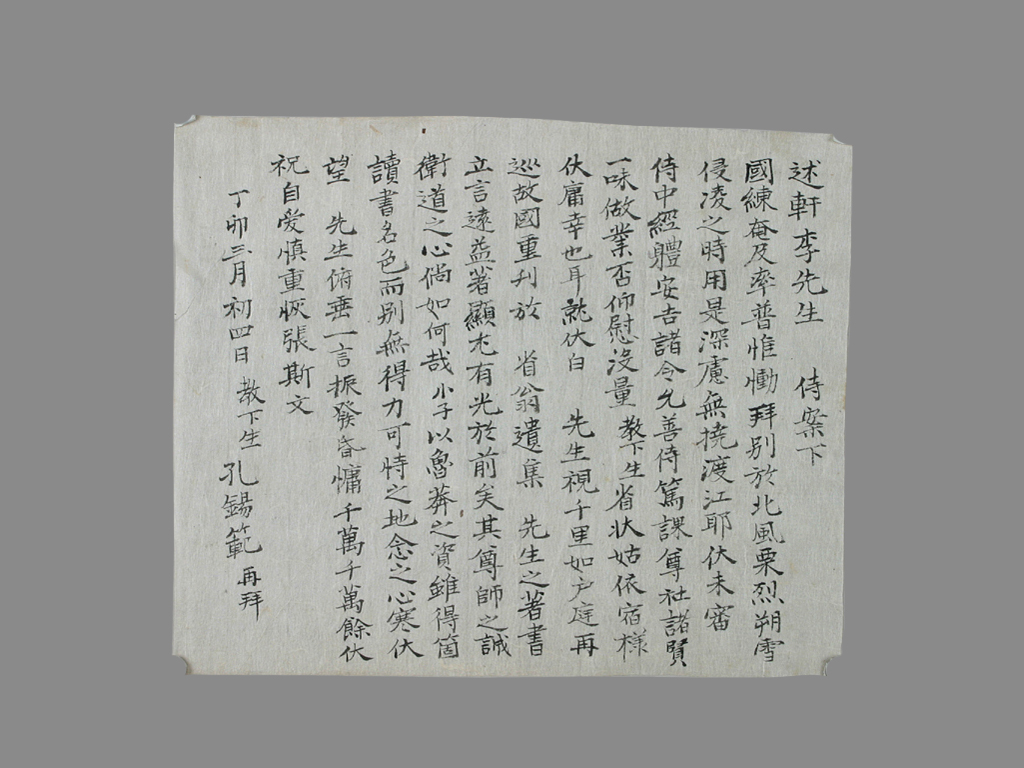 述軒李先生 侍案下
國練奄及率普惟慟拜别於北風栗烈朔雪
侵凌之時用是深慮無撓渡江耶伏未審
侍中經體安吉諸令允善侍篤課尊社諸賢
一味做業否仰慰沒量 教下生省狀姑依宿樣
伏庸幸也耳就伏白 先生視千里如户庭再
巡故國重刋於 省翁遺集 先生之著書
立言遠益著顯尤有光於前矣其尊師之誠
衛道之心倘如何哉小子以魯莽之資雖得箇
讀書名色而别無得力可恃之地念之心寒伏
望 先生俯垂一言振發昏慵千萬千萬餘伏
祝自爱慎重恢張斯文
丁卯三月初四日 教下生 孔錫範 再拜